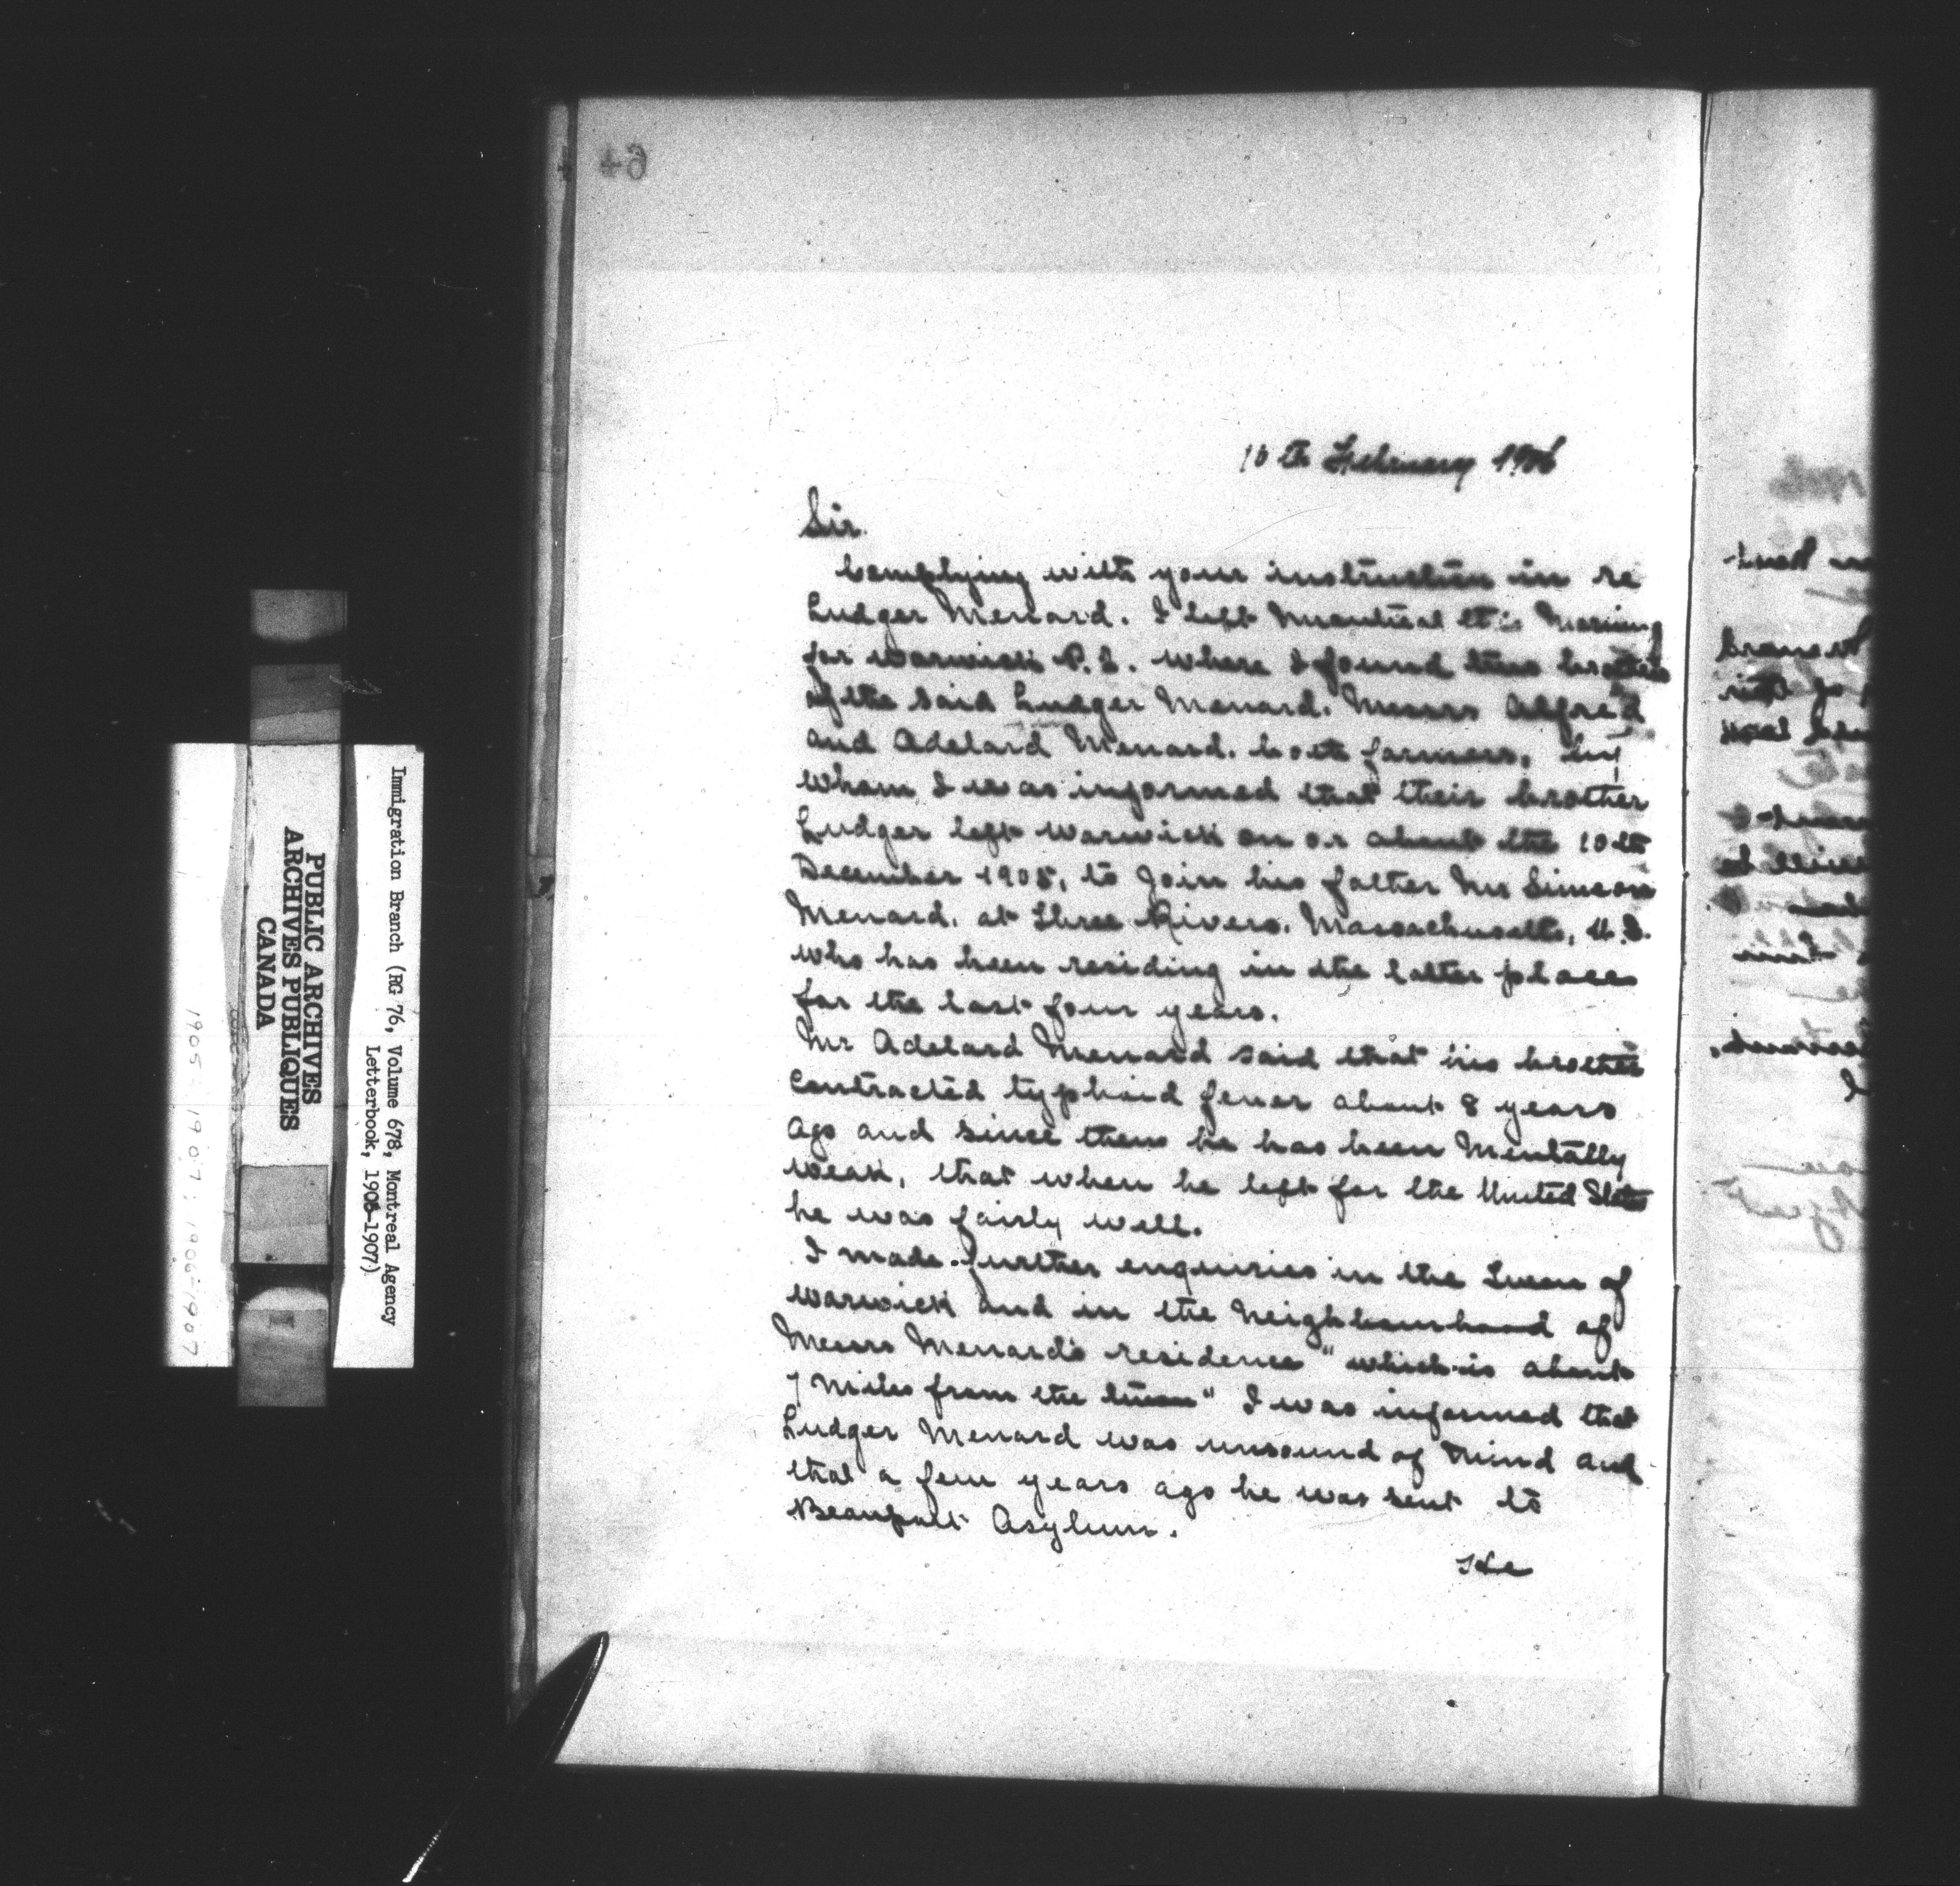 64
16th February 1906
Sir.
Complying with your instruction in re
Ludger Menard. I left Montreal this Morning
for Warwick P.Q. where I found two brothers
of the said Ludger Menard. Messrs Alfred
and Adelard Menard. both farmers, by
whom I was informed that their brother
Ludger left Warwick on or about the 10th
December 1905, to Join his father Mr Simeon
Menard, at Three Rivers. Massachusetts, U.S.
who has been residing in the latter place
for the last four years.
Mr Adelard Menard said that his brother
Contracted typhoid fever about 8 years
Ago and since then he has been Mentally
Weak, that when he left for the United States
he was fairly well.
I made further enquiries in the Town of
Warwick and in the Neighbourhood of
Messrs Menard's residence "which is about
7 Miles from the town" I was informed that
Ludger Menard was unsound of Mind and
that a few years ago he was sent to
Beauport Asylum.
He
Immigration Branch (RG 76, Volume 678, Montreal Agency
Letterbook, 1906-1907)
PUBLIC ARCHIVES
ARCHIVES PUBLIQUES
CANADA
1905-1907; 1906-1907